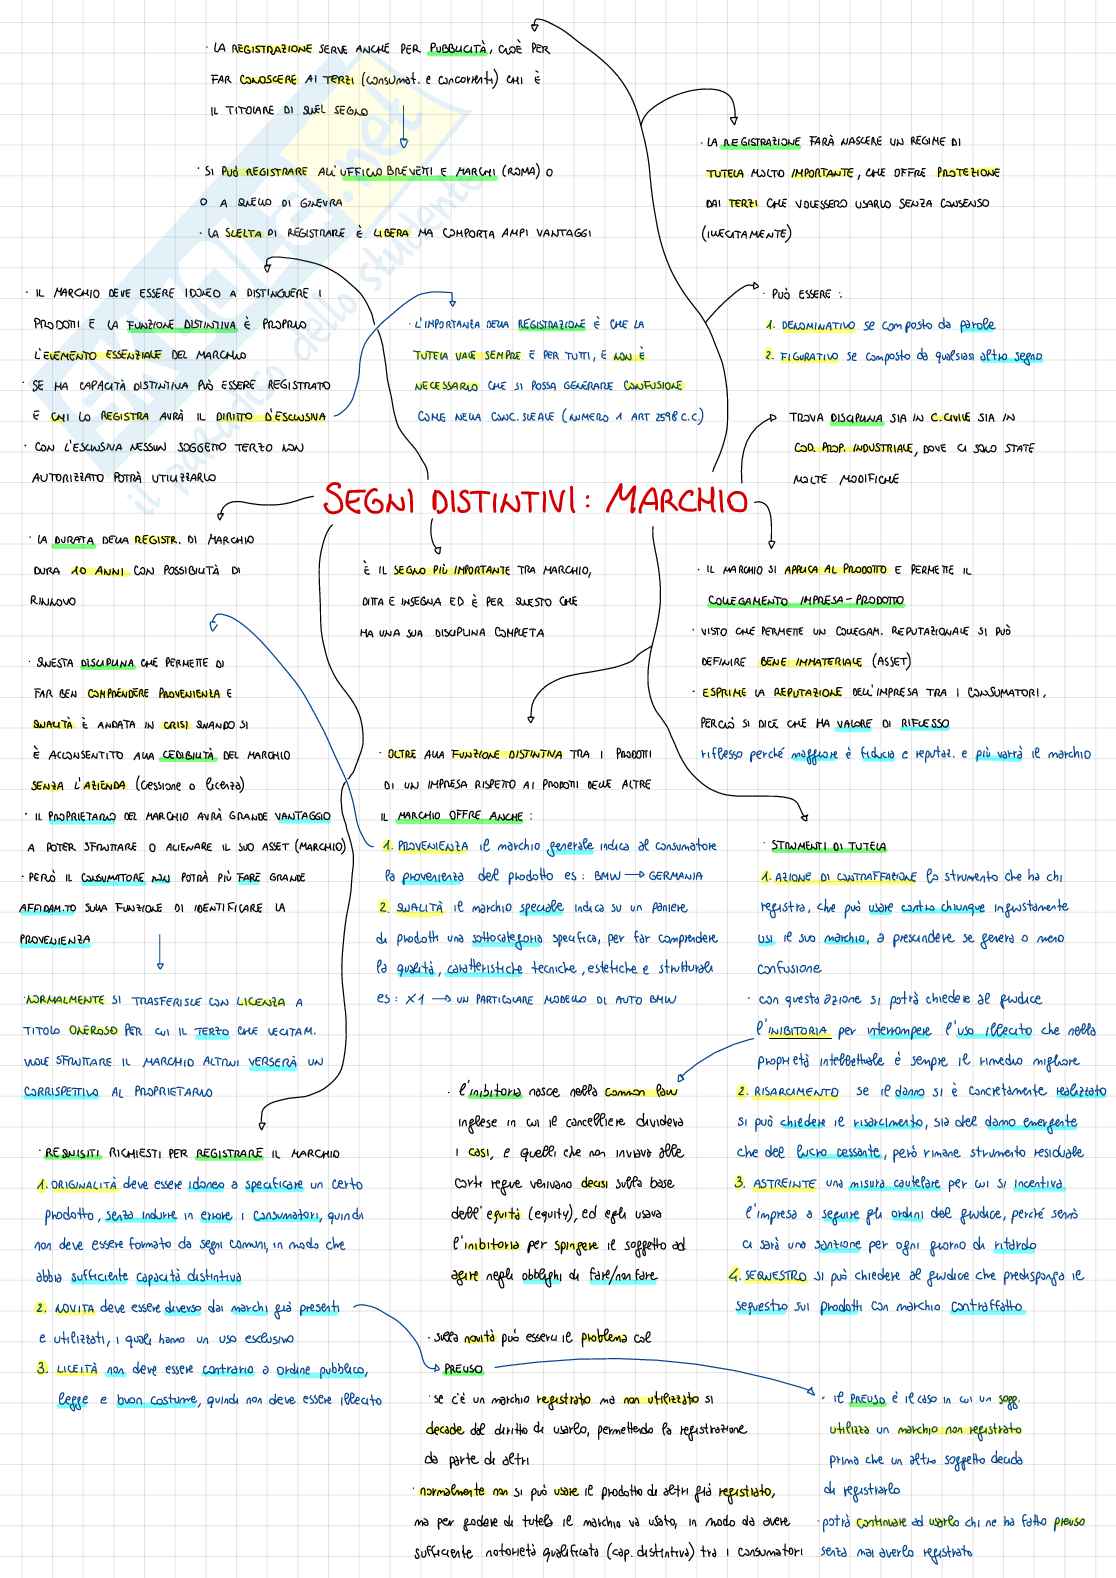 · LA REGISTRAZIONE SERVE ANCHE PER PUBBLICITÀ, CIOÈ PER
FAR CONOSCERE AI TERZI (consumat. e concorrenti) CHI È
IL TITOLARE DI QUEL SEGNO
· SI PUÒ REGISTRARE ALL'UFFICIO BREVETTI E MARCHI (ROMA) O
O A QUELLO DI GINEVRA
· LA SCELTA DI REGISTRARE È LIBERA MA COMPORTA AMPI VANTAGGI
· LA REGISTRAZIONE FARÀ NASCERE UN REGIME DI
TUTELA MOLTO IMPORTANTE, CHE OFFRE PROTEZIONE
DAI TERZI CHE VOLESSERO USARLO SENZA CONSENSO
(ILLECITAMENTE)
· IL MARCHIO DEVE ESSERE IDONEO A DISTINGUERE I
PRODOTTI E LA FUNZIONE DISTINTIVA È PROPRIO
L'ELEMENTO ESSENZIALE DEL MARCHIO
· SE HA CAPACITÀ DISTINTIVA PUÒ ESSERE REGISTRATO
E CHI LO REGISTRA AVRÀ IL DIRITTO D'ESCLUSIVA
· CON L'ESCLUSIVA NESSUN SOGGETTO TERZO NON
AUTORIZZATO POTRÀ UTILIZZARLO
· L'IMPORTANZA DELLA REGISTRAZIONE È CHE LA
TUTELA VALE SEMPRE E PER TUTTI, E NON È
NECESSARIO CHE SI POSSA GENERARE CONFUSIONE
COME NELLA CONC. SLEALE (NUMERO 1 ART 2598 C.C.)
· PUÒ ESSERE :
1. DENOMINATIVO se composto da parole
2. FIGURATIVO se composto da qualsiasi altro segno
TROVA DISCIPLINA SIA IN C.CIVILE SIA IN
COD. PROP. INDUSTRIALE, DOVE CI SONO STATE
MOLTE MODIFICHE
SEGNI DISTINTIVI: MARCHIO
· LA DURATA DELLA REGISTR. DI MARCHIO
DURA 10 ANNI CON POSSIBILITÀ DI
RINNOVO
È IL SEGNO PIÙ IMPORTANTE TRA MARCHIO,
DITTA E INSEGNA ED È PER QUESTO CHE
HA UNA SUA DISCIPLINA COMPLETA
· IL MARCHIO SI APPLICA AL PRODOTTO E PERMETTE IL
COLLEGAMENTO IMPRESA-PRODOTTO
· VISTO CHE PERMETTE UN COLLEGAM. REPUTAZIONALE SI PUÒ
DEFINIRE BENE IMMATERIALE (ASSET)
· ESPRIME LA REPUTAZIONE DELL'IMPRESA TRA I CONSUMATORI,
PERCIÒ SI DICE CHE HA VALORE DI RIFLESSO
riflesso perché maggiore è fiducia e reputaz. e più varrà il marchio
· QUESTA DISCIPLINA CHE PERMETTE DI
FAR BEN COMPRENDERE PROVENIENZA E
QUALITÀ È ANDATA IN CRISI QUANDO SI
È ACCONSENTITO ALLA CEDIBILITÀ DEL MARCHIO
SENZA L'AZIENDA (cessione o licenza)
· IL PROPRIETARIO DEL MARCHIO AVRÀ GRANDE VANTAGGIO
A POTER SFRUTTARE O ALIENARE IL SUO ASSET (MARCHIO)
· PERÒ IL CONSUMATORE NON POTRÀ PIÙ FARE GRANDE
AFFIDAM.TO SULLA FUNZIONE DI IDENTIFICARE LA
PROVENIENZA
· NORMALMENTE SI TRASFERISCE CON LICENZA A
TITOLO ONEROSO PER CUI IL TERZO CHE LECITAM.
VUOLE SFRUTTARE IL MARCHIO ALTRUI VERSERÀ UN
CORRISPETTIVO AL PROPRIETARIO
· OLTRE ALLA FUNZIONE DISTINTIVA TRA I PRODOTTI
DI UN IMPRESA RISPETTO AI PRODOTTI DELLE ALTRE
IL MARCHIO OFFRE ANCHE :
1. PROVENIENZA il marchio generale indica al consumatore
la provenienza del prodotto es: BMW → GERMANIA
2. QUALITÀ il marchio speciale indica su un paniere
di prodotti una sottocategoria specifica, per far comprendere
la qualità, caratteristiche tecniche, estetiche e strutturali
es: X1 → UN PARTICOLARE MODELLO DI AUTO BMW
· STRUMENTI DI TUTELA
1. AZIONE DI CONTRAFFAZIONE lo strumento che ha chi
registra, che può usare contro chiunque ingiustamente
usi il suo marchio, a prescindere se genera o meno
confusione
· con questa azione si potrà chiedere al giudice
l'INIBITORIA per interrompere l'uso illecito che nella
proprietà intellettuale è sempre il rimedio migliore
2. RISARCIMENTO se il danno si è concretamente realizzato
si può chiedere il risarcimento, sia del danno emergente
che del lucro cessante, però rimane strumento residuale
3. ASTREINTE una misura cautelare per cui si incentiva
l'impresa a seguire gli ordini del giudice, perché sennò
ci sarà una sanzione per ogni giorno di ritardo
4. SEQUESTRO si può chiedere al giudice che predisponga il
sequestro sui prodotti con marchio contraffatto
· l'inibitoria nasce nella common law
inglese in cui il cancelliere divideva
i casi, e quelli che non inviava alle
corti regie venivano decisi sulla base
dell'equità (equity), ed egli usava
l'inibitoria per spingere il soggetto ad
agire negli obblighi di fare/non fare
· REQUISITI RICHIESTI PER REGISTRARE IL MARCHIO
1. ORIGINALITÀ deve essere idoneo a specificare un certo
prodotto, senza indurre in errore i consumatori, quindi
non deve essere formato da segni comuni, in modo che
abbia sufficiente capacità distintiva
2. NOVITÀ deve essere diverso dai marchi già presenti
e utilizzati, i quali hanno un uso esclusivo
3. LICEITÀ non deve essere contrario a ordine pubblico,
legge e buon costume, quindi non deve essere illecito
· sulla novità può esserci il problema col
PREUSO
· se c'è un marchio registrato ma non utilizzato si
decade dal diritto di usarlo, permettendo la registrazione
da parte di altri
· normalmente non si può usare il prodotto di altri già registrato,
ma per godere di tutela il marchio va usato, in modo da avere
sufficiente notorietà qualificata (cap. distintiva) tra i consumatori
· il PREUSO è il caso in cui un sogg.
utilizza un marchio non registrato
prima che un altro soggetto decida
di registrarlo
· potrà continuare ad usarlo chi ne ha fatto preuso
senza mai averlo registrato